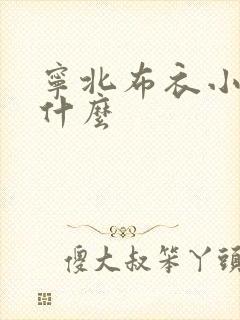 寧北布衣小
什麼
傻大叔笨丫頭